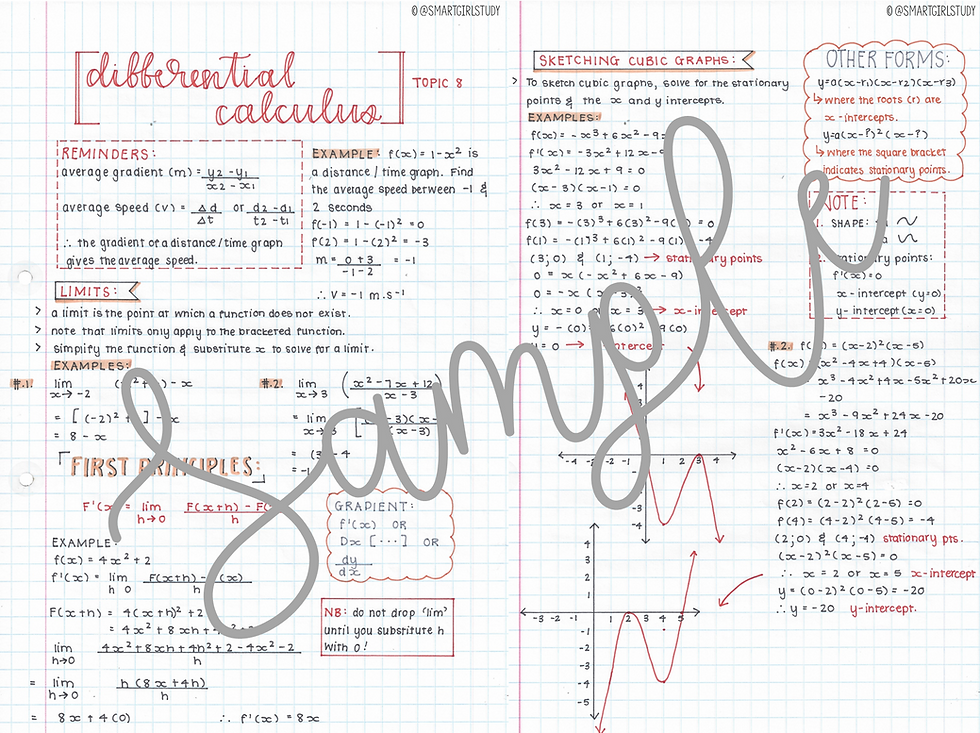 © @SMARTGIRLSTUDY
differential
calculus
TOPIC 8
REMINDERS:
average gradient (m) = y2 - y1
x2 - x1
average speed (v) = Δd or d2 - d1
Δt t2 - t1
∴ the gradient of a distance / time graph
gives the average speed.
EXAMPLE: f(x) = 1 - x² is
a distance / time graph. Find
the average speed between -1 &
2 seconds
f(-1) = 1 - (-1)² = 0
f(2) = 1 - (2)² = -3
m = 0 + 3 = -1
-1 - 2
∴ V = -1 m.s⁻¹
LIMITS:
> a limit is the point at which a function does not exist.
> note that limits only apply to the bracketed function.
> simplify the function & substitute x to solve for a limit.
EXAMPLES:
#.1. lim - x
x→ -2
= [ (-2)² + ] - x
= 8 - x
#.2. lim ( x² - 7x + 12 )
x→3 x - 3
= lim
(x - 3)
FIRST PRINCIPLES:
F'(x) = lim F(x+h) - F(
h→0 h
EXAMPLE:
f(x) = 4x² + 2
f'(x) = lim F(x+h) - (x)
h 0 h
F(x+h) = 4(x+h)² + 2
= 4x² + 8xh +
lim 4x² + 8xh + 4h² + 2 - 4x² - 2
h→0 h
= lim h (8x + 4h)
h→0 h
= 8x + 4(0) ∴ f'(x) = 8x
GRADIENT:
f'(x) OR
Dx [···] OR
dy
dx
NB: do not drop 'lim'
until you substitute h
with 0!
© @SMARTGIRLSTUDY
SKETCHING CUBIC GRAPHS:
> To sketch cubic graphs, solve for the stationary
points & the x and y intercepts.
EXAMPLES:
f(x) = -x³ + 6x² - 9x
f'(x) = -3x² + 12x - 9
3x² - 12x + 9 = 0
(x - 3)(x - 1) = 0
∴ x = 3 or x = 1
f(3) = -(3)³ + 6(3)² - 9( ) = 0
f(1) = -(1)³ + 6(1)² - 9(1) -4
(3;0) & (1;-4) → stationary points
0 = x(-x² + 6x - 9)
0 = -x (x - 3)²
∴ x = 0 or x = 3 → x-intercept
y = -(0) 6(0)² - 9(0)
y = 0 → intercept
OTHER FORMS:
y=a(x-r1)(x-r2)(x-r3)
↳ where the roots (r) are
x-intercepts.
y=a(x-?)²(x-?)
↳ where the square bracket
indicates stationary points.
NOTE:
1. SHAPE:
a
2. stationary points:
f'(x)=0
x-intercept (y=0)
y-intercept (x=0)
#.2. f(x) = (x-2)²(x-5)
f(x) = (x²-4x+4)(x-5)
x³-4x²+4x-5x²+20x
-20
= x³-9x²+24x-20
f'(x)=3x²-18x+24
x²-6x+8 = 0
(x-2)(x-4) = 0
∴ x=2 or x=4
f(2) = (2-2)²(2-5) = 0
f(4) = (4-2)²(4-5) = -4
(2;0) & (4;-4) stationary pts.
(x-2)²(x-5) = 0
∴ x = 2 or x = 5 x-intercept
y = (0-2)²(0-5) = -20
∴ y = -20 y-intercept.
4
-4 -3 -2 -1 1 2 3 4
-3
-4
4
3
2
1
-3 -2 -1 1 2 3 4 5
-1
-2
-3
-4
-5
Sample